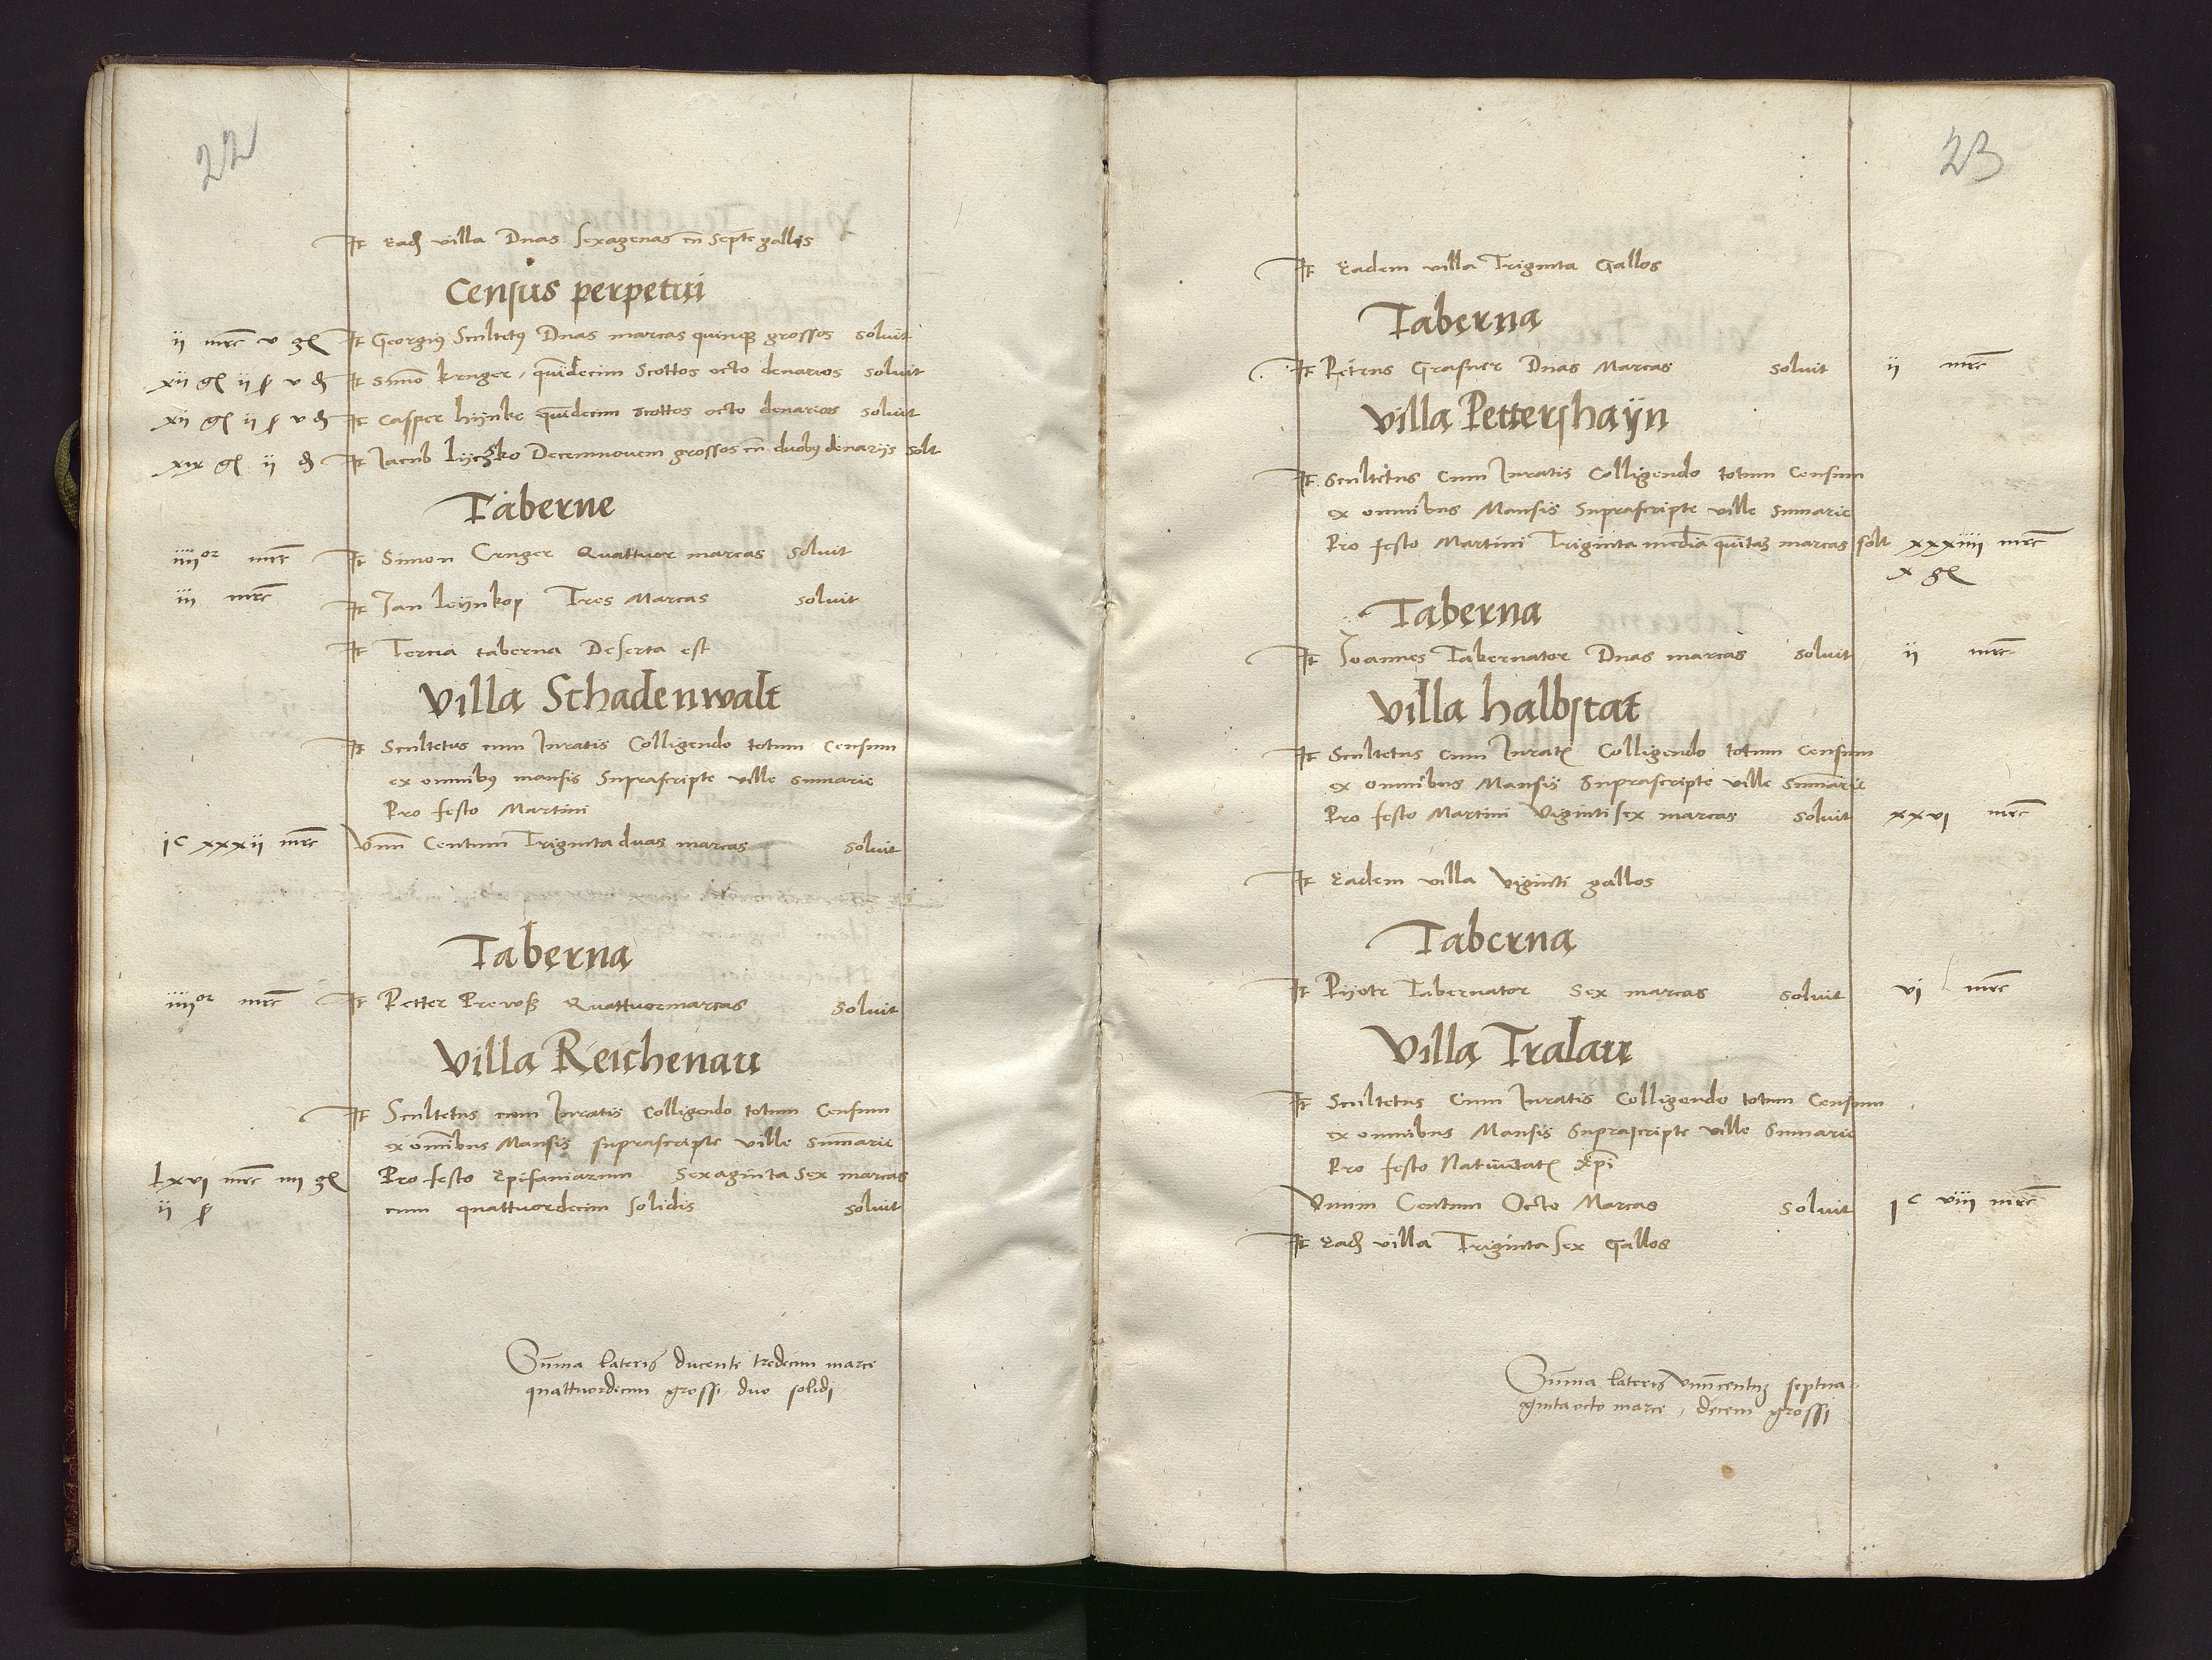 22
It eadȝ villa Duas sexagenas cū septē gallis
Census perpetui
ii mrc v gl It Georgiꝰ Scultetꝰ Duas marcas quinqȝ grossos soluit
xii gl ii ß v ₰ It Simō kruger quīdecim Scottos octo denarios soluit
xii gl ii ß v ₰ It casper hijnke quīdecim scottos octo denarios soluit
xix gl ii ₰ It Jacub Lijczko Decemnouem grossos cū duobꝰ denarijs solt
Taberne
iiii or mrc It Simon Cruger Quattuor marcas soluit
iii mrc It Jan leijnkop Tres Marcas soluit
It Tercia taberna Deserta est
Villa Schadenwalt
It Scultetus cum Juratis Colligendo totum Censum
ex omnibꝰ mansis Suprascripte ville sumarie
Pro festo Martini
ic xxxii mrc Vnū Centum Triginta duas marcas soluit
Taberna
iiii or mrc It Petter Prewß Quattuor marcas soluit
Villa Reichenau
It Scultetus cum Juratis Colligendo totum Censum
ex oīnibus Mansis suprascripte ville Sumarie
Lxvi mrc iiii gl Pro festo Epifaniarum Sexaginta Sex marcas
ii ß cum quattuordecim solidis soluit
Sūma lateris ducente tredecim marce
quattuordecim grossi duo solidi
23
It Eadem villa Triginta Gallos
Taberna
It Petrus Grasner Duas Marcas soluit ii mrc
Villa Pettershaÿn
It Scultetus Cum Juratis Colligendo totum Censum
ex omnibus Mansis Suprascripte ville Sumarie
Pro festo Martini Triginta mediā quītaȝ marcas solt xxxiiii mrc
x gl
Taberna
It Joannes Tabernator Duas marcas soluit ii mrc
Villa halbstat
It Scultetus Cum Juratꝭ Colligendo totum Censum
ex omnibus Mansis Suprascripte ville Sumarie
Pro festo Martini Viginti sex marcas soluit xxvi mrc
It Eadem villa Viginti gallos
Taberna
It Pijotr Tabernator Sex marcas soluit vi mrc
Villa Tralau
It Scultetus Cum Juratis Colligendo totum Censum
ex omnibus Mansis Suprascripte ville Sumarie
Pro festo Natiuitatꝭ xp̄i
Vnum Centum Octo Marcas soluit ic viii mrc
It Eadȝ villa Triginta sex Gallos
Sūma lateris vnūcentuȝ septua-
ginta octo marce, decem grossi